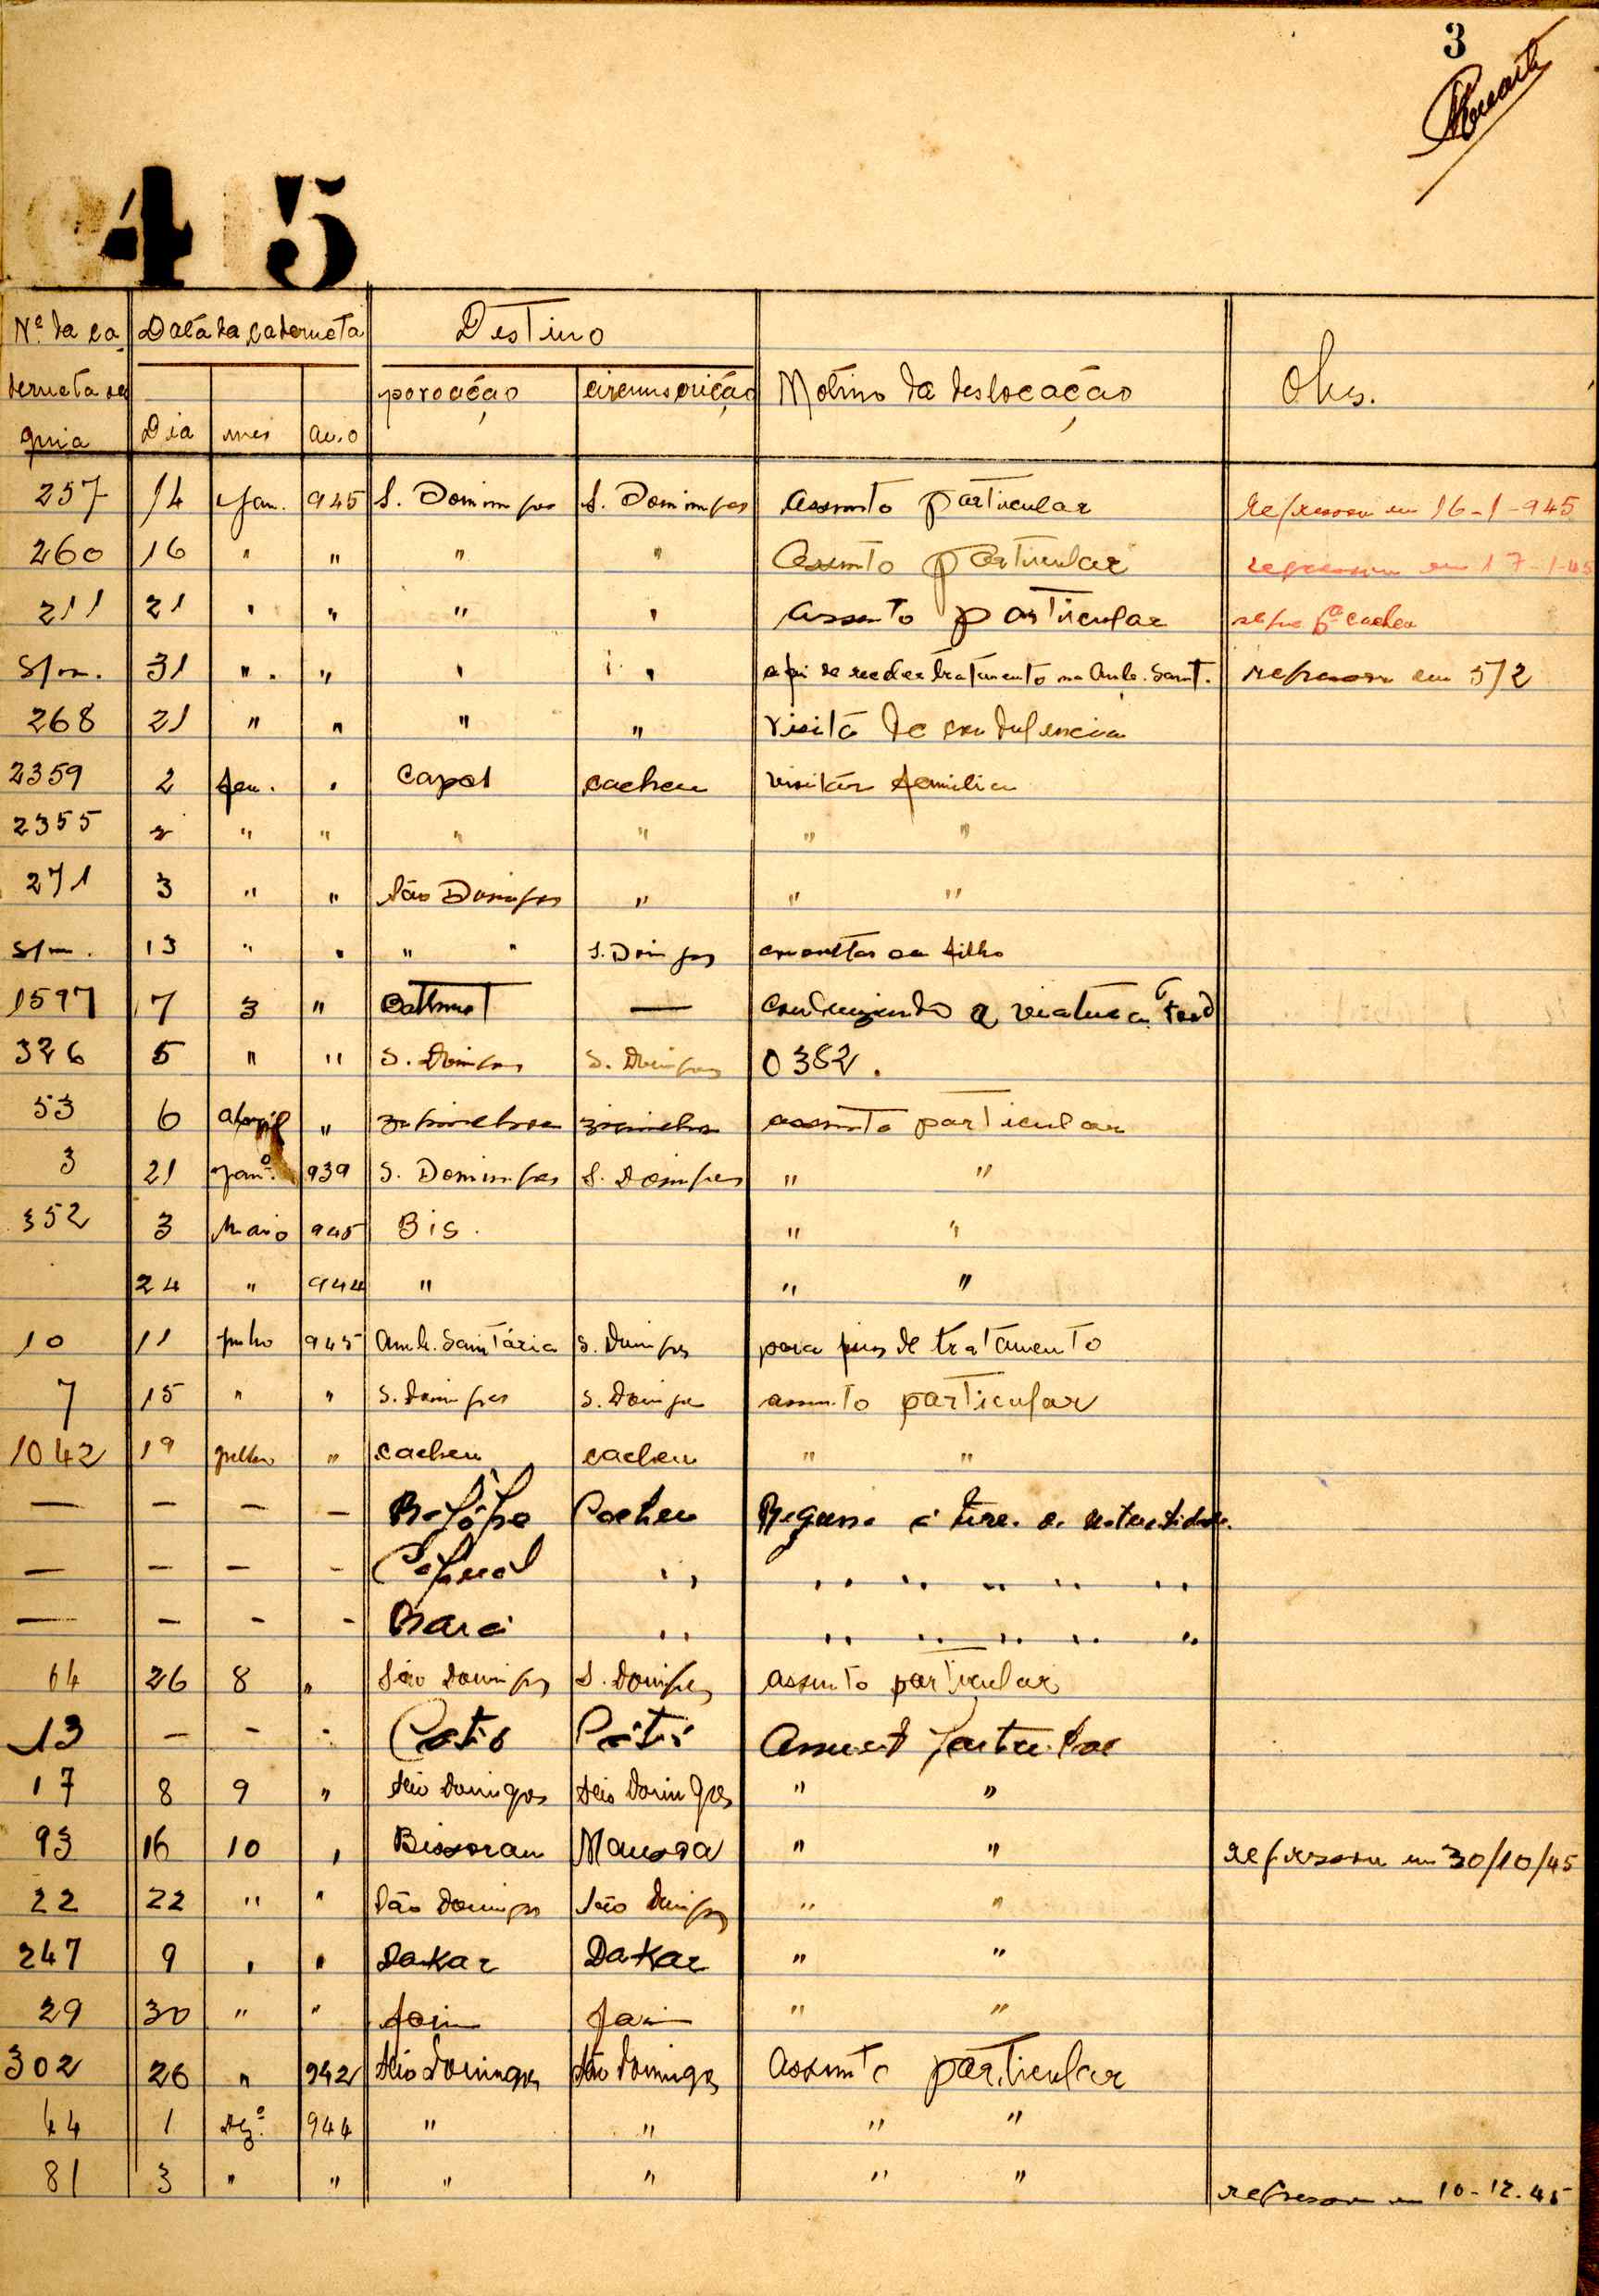 3
45
Nº da ca Data da caderneta Destino
derneta ou povoação circunscrição Motivo da deslocação Obs.
guia Dia mês ano
257 14 Jan. 945 S. Domingos S. Domingos Assunto particular regressou em 16-1-945
260 16 " " " " Assunto particular regressou em 17-1-45
211 21 " " " " Assunto particular cacheu
S/n. 31 " " " " tratamento na Amb. Sanit. regressou em 5/2
268 21 " " " " Visita de
2359 2 Fev. " Capol cacheu visitar familia
2355 2 " " " " " "
271 3 " " São Domingos " " "
S/n. 13 " " " " S. Domingos filho
1597 7 3 " — conduzindo a viatura Ford
326 5 " " S. Domingos S. Domingos 0382.
53 6 Abril " assunto particular
3 21 Janº. 939 S. Domingos S. Domingos " "
352 3 Maio 945 Bis. " "
24 " 944 " " "
10 11 Junho 945 Amb. Sanitária S. Domingos para fins de tratamento
7 15 " " S. Domingos S. Domingos assunto particular
1042 19 Julho " cacheu cacheu " "
— — — — Cacheu
— — — — " " " " " "
— — — — " " " " " "
64 26 8 " São Domingos S. Domingos assunto particular
13 — — " Catió Catió Assunto particular
17 8 9 " São Domingos São Domingos " "
93 16 10 " Bissoran Mansoa " " regressou em 30/10/45
22 22 " " São Domingos São Domingos " "
247 9 " " Dakar Dakar " "
29 30 " " Farim Farim " "
302 26 " 942 São Domingos São Domingos Assunto particular
44 1 Dezº. 944 " " " "
81 3 " " " " " " regressou em 10-12-45